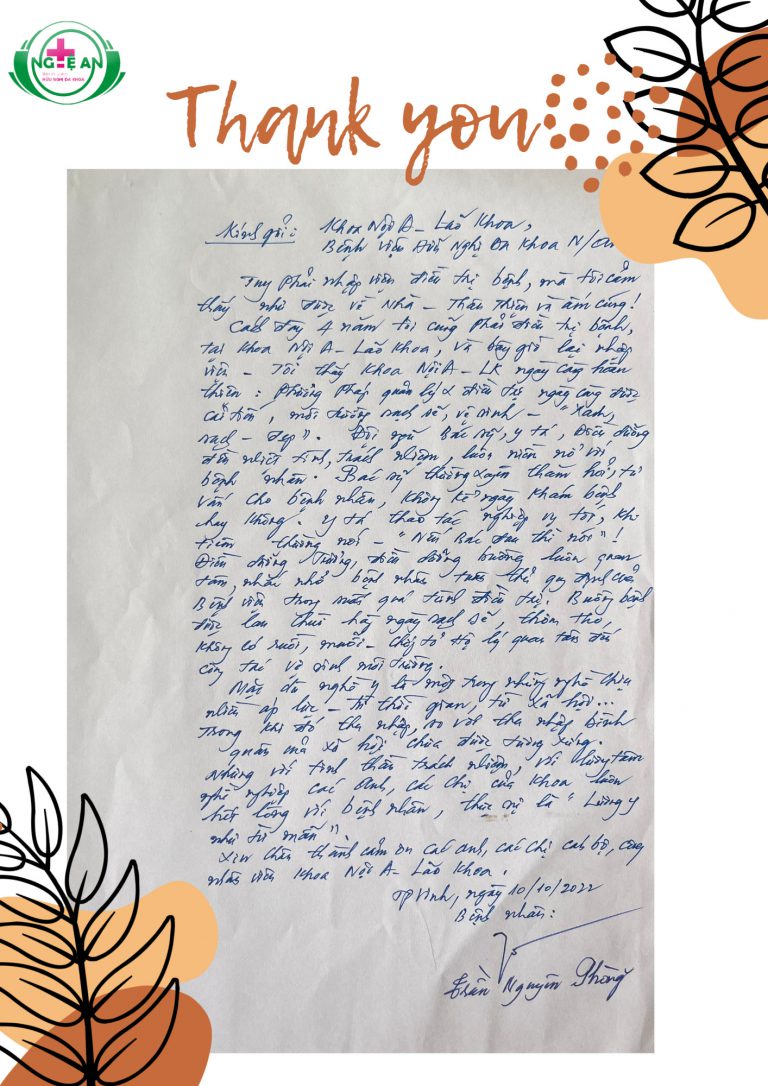 NGHỆ AN
HỮU NGHỊ ĐA KHOA
Thank you
Kính gửi: Khoa Nội A - Lão Khoa,
Bệnh viện Hữu Nghị Đa Khoa N/An
Tuy phải nhập viện điều trị bệnh, mà tôi cảm
thấy như được về Nhà - Thân thiện và ấm cúng!
Cách đây 4 năm tôi cũng phải điều trị bệnh,
tại Khoa Nội A - Lão Khoa, và bây giờ lại nhập
viện - Tôi thấy Khoa Nội A - LK ngày càng hoàn
thiện: Phương pháp quản lý & điều trị ngày càng được
cải tiến, môi trường sạch sẽ, vệ sinh - "Xanh,
sạch - đẹp". Đội ngũ Bác sỹ, y tá, Điều dưỡng
đều nhiệt tình, trách nhiệm, luôn niềm nở với
bệnh nhân. Bác sỹ thường xuyên thăm hỏi, tư
vấn cho bệnh nhân, không kể ngày khám bệnh
hay không. Y tá thao tác nghiệp vụ tốt, khi
tiêm thường nói - "Nếu Bác đau thì nói"!
Điều dưỡng Trưởng, điều dưỡng buồng luôn quan
tâm, nhắc nhở bệnh nhân tuân thủ quy định của
Bệnh viện trong suốt quá trình điều trị. Buồng bệnh
được lau chùi hàng ngày sạch sẽ, thơm tho,
không có ruồi, muỗi - chứng tỏ họ quan tâm đến
công tác vệ sinh môi trường.
Mặc dù nghề y là một trong những nghề chịu
nhiều áp lực - Từ thời gian, từ xã hội...
Trong khi đó thu nhập, so với thu nhập bình
quân mà xã hội chưa được tương xứng.
Nhưng với tinh thần trách nhiệm, với lương tâm
nghề nghiệp các Anh, các chị của Khoa luôn
hết lòng với bệnh nhân, thực sự là "Lương y
như từ mẫu".
Xin chân thành cảm ơn các anh, các chị cán bộ, công
nhân viên Khoa Nội A - Lão Khoa.
TP Vinh, ngày 10/10/2022
Bệnh nhân:
Trần Nguyên Phong